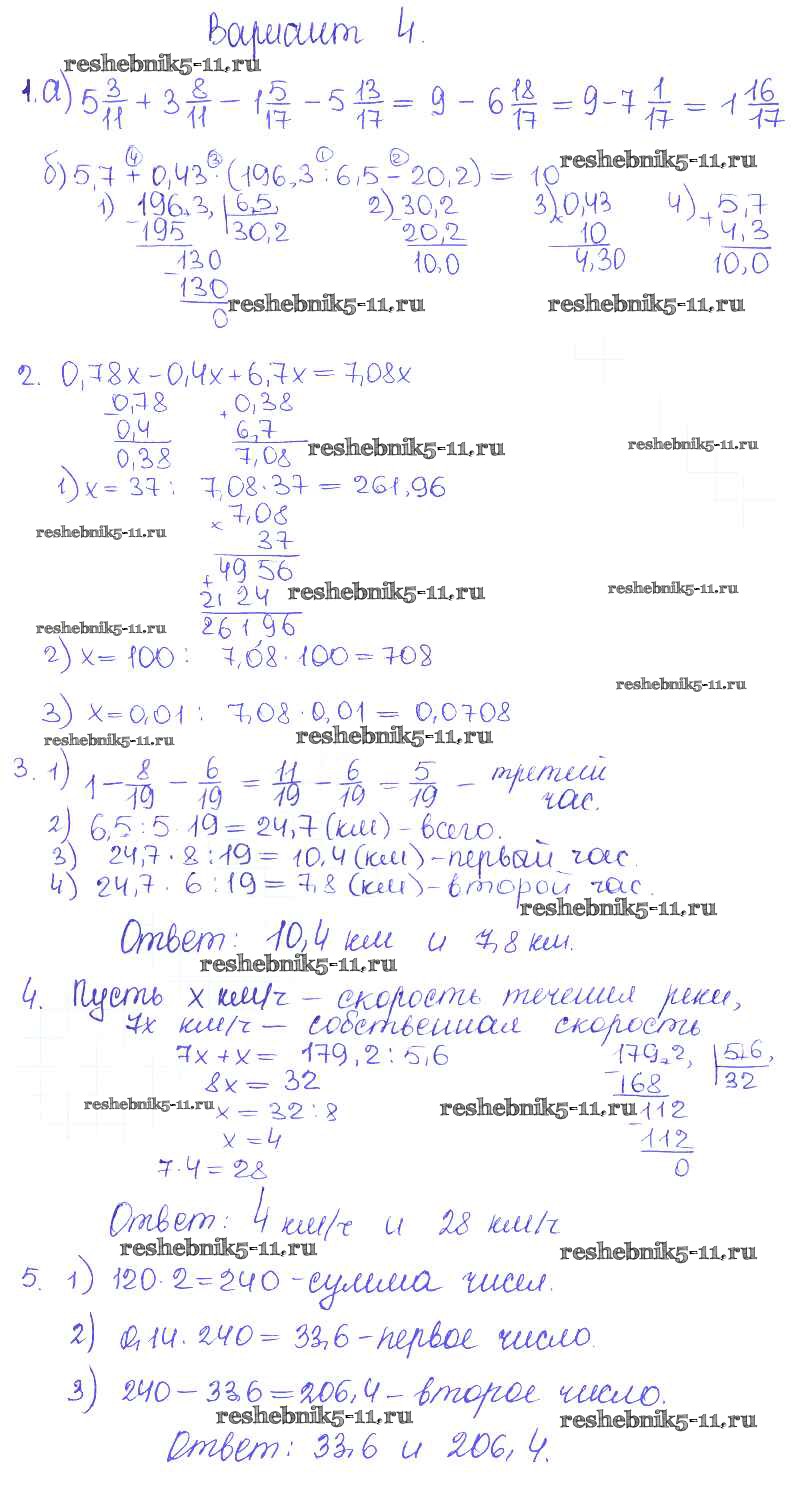 Вариант 4.
reshebnik5-11.ru
1. а) 5 3/11 + 3 8/11 − 1 5/17 − 5 13/17 = 9 − 6 18/17 = 9 − 7 1/17 = 1 16/17
④ ③ ① ②
reshebnik5-11.ru
б) 5,7 + 0,43 · (196,3 : 6,5 − 20,2) = 10
1) 196,3, | 6,5, 2) 30,2 3) 0,43 4) 5,7
− 195 30,2 − 20,2 × 10 + 4,3
− 130 10,0 4,30 10,0
130
0
reshebnik5-11.ru reshebnik5-11.ru
2. 0,78x − 0,4x + 6,7x = 7,08x
− 0,78 + 0,38
0,4 6,7
0,38 7,08
reshebnik5-11.ru reshebnik5-11.ru
1) x = 37 : 7,08 · 37 = 261,96
reshebnik5-11.ru
× 7,08
37
+ 49 56
21 24
reshebnik5-11.ru reshebnik5-11.ru
261 96
reshebnik5-11.ru
2) x = 100 : 7,08 · 100 = 708
reshebnik5-11.ru
3) x = 0,01 : 7,08 · 0,01 = 0,0708
reshebnik5-11.ru reshebnik5-11.ru
3. 1) 1 − 8/19 − 6/19 = 11/19 − 6/19 = 5/19 − третий
час.
2) 6,5 : 5 · 19 = 24,7 (км) − всего.
3) 24,7 · 8 : 19 = 10,4 (км) − первый час.
4) 24,7 · 6 : 19 = 7,8 (км) − второй час.
reshebnik5-11.ru
Ответ: 10,4 км и 7,8 км.
reshebnik5-11.ru
4. Пусть x км/ч − скорость течения реки,
7x км/ч − собственная скорость
7x + x = 179,2 : 5,6 179,2, | 5,6,
8x = 32 − 168 32
reshebnik5-11.ru x = 32 : 8 reshebnik5-11.ru − 112
x = 4 112
7 · 4 = 28 0
Ответ: 4 км/ч и 28 км/ч
reshebnik5-11.ru reshebnik5-11.ru
5. 1) 120 · 2 = 240 − сумма чисел.
2) 0,14 · 240 = 33,6 − первое число.
3) 240 − 33,6 = 206,4 − второе число.
reshebnik5-11.ru reshebnik5-11.ru
Ответ: 33,6 и 206,4.